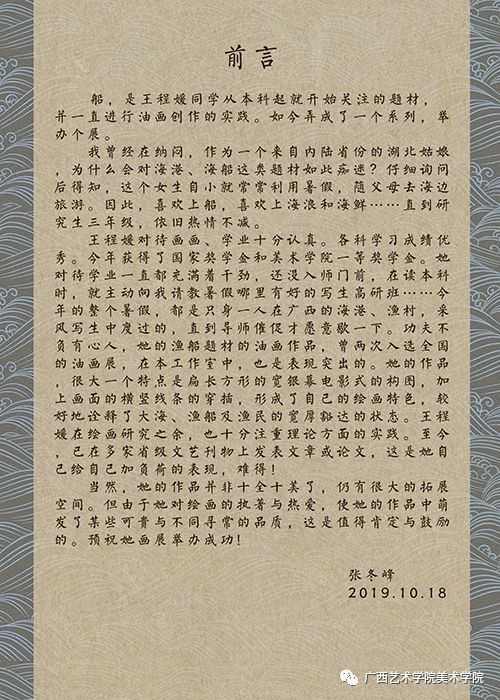 前言
船，是王程媛同学从本科起就开始关注的题材，
并一直进行油画创作的实践。如今弄成了一个系列，举
办个展。
我曾经在纳闷，作为一个来自内陆省份的湖北姑娘
，为什么会对海港、海船这类题材如此痴迷？仔细询问
后得知，这个女生自小就常常利用暑假，随父母去海边
旅游。因此，喜欢上船，喜欢上海浪和海鲜……直到研
究生三年级，依旧热情不减。
王程媛对待画画、学业十分认真。各科学习成绩优
秀。今年获得了国家奖学金和美术学院一等奖学金。她
对待学业一直都充满着干劲，还没入师门前，在读本科
时，就主动向我请教暑假哪里有好的写生高研班……今
年的整个暑假，都是只身一人在广西的海港、渔村，采
风写生中度过的，直到导师催促才愿意歇一下。功夫不
负有心人，她的渔船题材的油画作品，曾两次入选全国
的油画展，在本工作室中，也是表现突出的。她的作品
，很大一个特点是扁长方形的宽银幕电影式的构图，加
上画面的横竖线条的穿插，形成了自己的绘画特色，较
好地诠释了大海、渔船及渔民的宽厚豁达的状态。王程
媛在绘画研究之余，也十分注重理论方面的实践。至今
，已在多家省级文艺刊物上发表文章或论文，这是她自
己给自己加负荷的表现，难得！
当然，她的作品并非十全十美了，仍有很大的拓展
空间。但由于她对绘画的执著与热爱，使她的作品中萌
发了某些可贵与不同寻常的品质，这是值得肯定与鼓励
的。预祝她画展举办成功！
张冬峰
2019.10.18
广西艺术学院美术学院